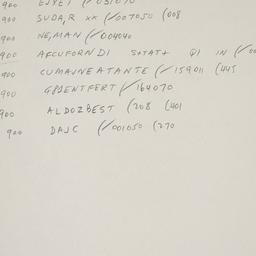 900 EJYEY (✓031070
900 SUDA,R xx (✓007050 (008
900 NE,MAN (✓004040
900 AFCUFORNDI SOTAT+ QI IN (✓00
900 CUMAJNEATANTE (✓159011 (445
900 G8DENTFERT (✓164070
900 ALDOZBEST (208 (401
900 DAJC (✓001050 (270